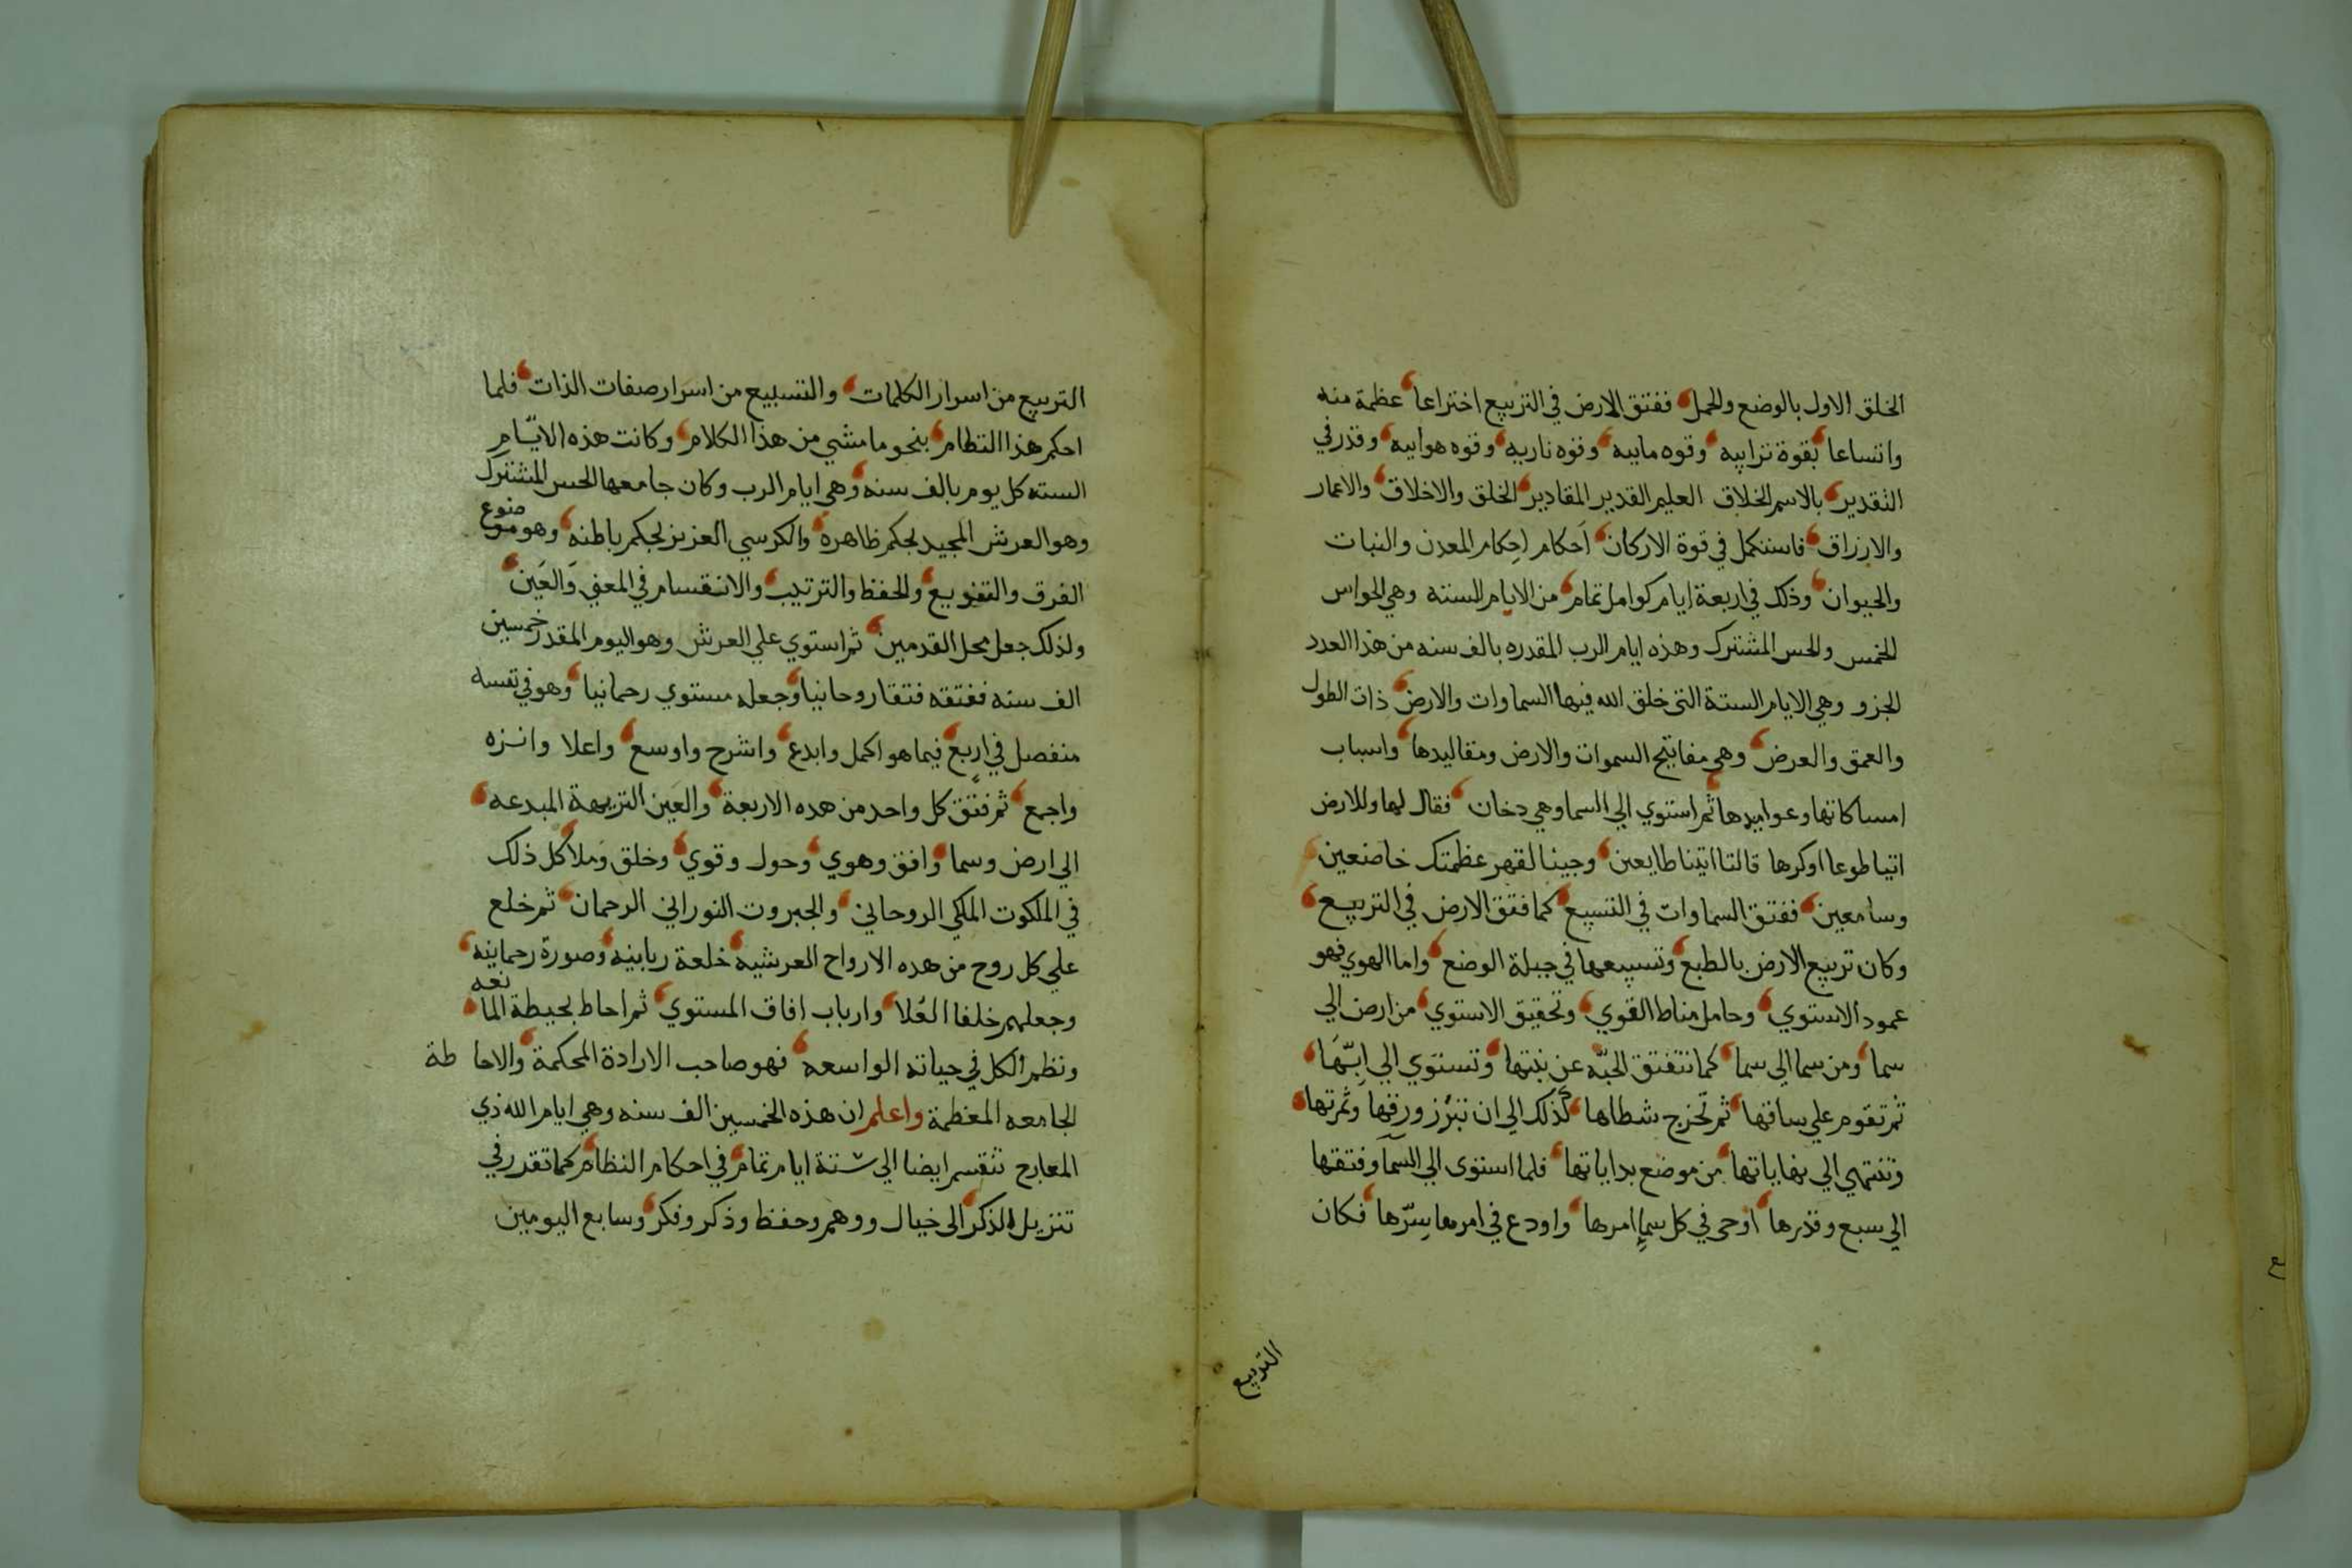 الخلق الاول بالوضع والحمل ففتق الارض في التربيع اختراعا عظمة منه
واتساعا بقوة ترابيه وقوه ماييه وقوه ناريه وقوه هواييه وقدر في
التقدير بالاسم الخلاق العليم القدير المقادير الخلق والاخلاق والاعمار
والارزاق فاستكمل في قوة الاركان اَحكام اِحكام المعدن والنبات
والحيوان وذلك في اربعة ايام كوامل تمام من الايام السته وهي الحواس
الخمس والحس المشترك وهذه ايام الرب المقدره بالف سنه من هذا العدد
الجزو وهي الايام الستة التي خلق الله فيها السماوات والارض ذات الطول
والعمق والعرض وهي مفاتيح السموات والارض ومقاليدها واسباب
امساكاتها وعواميدها ثم استوي الي السما وهي دخان فقال لها وللارض
اتيا طوعا اوكرها قالتا اتينا طايعين وجينا لقهر عظمتك خاضعين
وسامعين ففتق السماوات في التسبيع كما فتق الارض في التربيع
وكان تربيع الارض بالطبع وتسبيعها في جبلة الوضع واما الهوي فهو
عمود الاستوي وحامل مناط القوي وتحقيق الاستوي من ارض الي
سما ومن سما الي سما كما تتفتق الحبّه عن نبتها وتستوي الي اِبّهَا
ثم تقوم علي ساقها ثم تخرج شطاها كذلك الي ان تبرز ورقها وثمرتها
وتنتهي الي نهاياتها من موضع بداياتها فلما استوى الي السمآ وفتقها
الي سبع وقدرها اوحى في كل سماءٍ امرها واودع في امرها سِرّها فكان
التربيع
التربيع من اسرار الكلمات والتسبيع من اسرار صفات الذات فلما
احكم هذا النظام بنحو ما مشي من هذا الكلام وكانت هذه الايّام
السته كل يوم بالف سنه وهي ايام الرب وكان جامعها الحس المشترك
وهو العرش المجيد لحكم ظاهره والكرسي العزيز لحكم باطنه وهو موضوع
الفرق والتفويع والحفظ والترتيب والانقسام في المعني والعَين
ولذلك جعل محل القدمين ثم استوي علي العرش وهو اليوم المقدر خمسين
الف سنه ففتقه فتقا روحانيا وجعله مستوي رحمانيا وهو في نفسه
منفصل في اربع فيما هو اكمل وابدع واشرح واوسع واعلا وانزه
واجمع ثم فتق كل واحد من هده الاربعة والعَين النزيهة المبدعه
الي ارض وسما وافق وهوي وحول وقوي وخلق وملأ كل ذلك
في الملكوت الملكي الروحاني والجبروت النوراني الرحمان ثم خلع
علي كل روح من هده الارواح العرشيه خلعة ربانيه وصورة رحمانيه
وجعلهم خلفا العُلا وارباب افاق المستوي ثم احاط بحيطة المانعه
ونظم الكل في حياته الواسعه فهو صاحب الارادة المحكمة والاحاطة
الجامعه المعظمة واعلم ان هذه الخمسين الف سنه وهي ايام الله ذي
المعارج تنقسم ايضا الي ستة ايام تمام في احكام النظام كما تقدر في
تنزيل الذكر الى خيال ووهم وحفظ وذكر وفكر وسابع اليومين